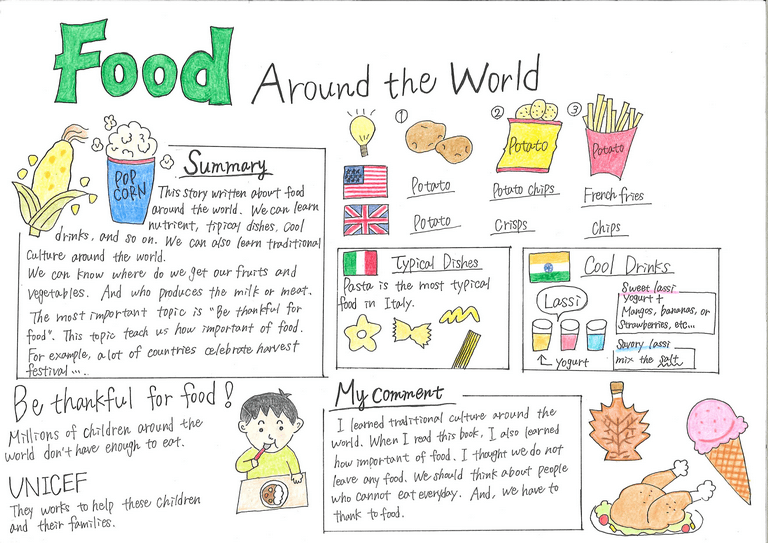 Food Around the World
POP
CORN
Summary
This story written about food
around the world. We can learn
nutrient, tipical dishes, cool
drinks, and so on. We can also learn traditional
Culture around the world.
We can know where do we get our fruits and
vegetables. And who produces the milk or meat.
The most important topic is "Be thankful for
food". This topic teach us how important of food.
For example, a lot of countries celebrate harvest
festival ....
① ② ③
Potato
Potato
Potato Potato chips French fries
Potato Crisps Chips
Typical Dishes
Pasta is the most typical
food in Italy.
Cool Drinks
Lassi
Yogurt
Sweet lassi
Yogurt +
Mangos, bananas, or
Strawberries, etc...
Savory lassi
mix the salt
Be thankful for food!
Millions of children around the
world don't have enough to eat.
UNICEF
They works to help these children
and their families.
My comment
I learned traditional culture around the
world. When I read this book, I also learned
how important of food. I thaught we do not
leave any food. We should think about people
who cannot eat everyday. And, we have to
thank to food.